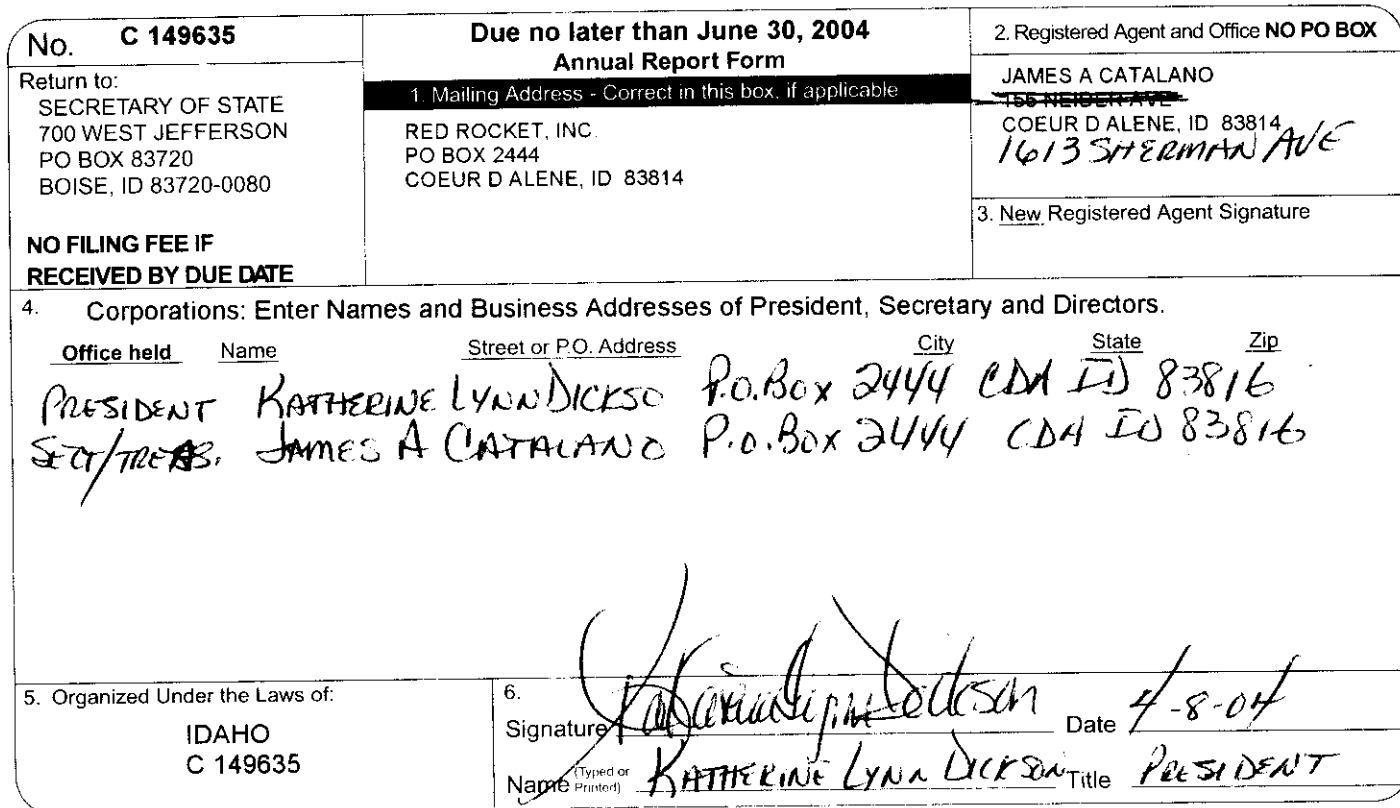 No. C 149635
Return to:
SECRETARY OF STATE
700 WEST JEFFERSON
PO BOX 83720
BOISE, ID 83720-0080
NO FILING FEE IF
RECEIVED BY DUE DATE
Due no later than June 30, 2004
Annual Report Form
1. Mailing Address - Correct in this box, if applicable
RED ROCKET, INC.
PO BOX 2444
COEUR D ALENE, ID 83814
2. Registered Agent and Office NO PO BOX
JAMES A CATALANO
155 NEIDER AVE
COEUR D ALENE, ID 83814
1613 SHERMAN AVE
3. New Registered Agent Signature
4. Corporations: Enter Names and Business Addresses of President, Secretary and Directors.
Office held Name Street or P.O. Address City State Zip
PRESIDENT KATHERINE LYNN DICKSO P.O. Box 2444 CDA ID 83816
SECT/TREAS. JAMES A CATALANO P.O. Box 2444 CDA ID 83816
5. Organized Under the Laws of:
IDAHO
C 149635
6.
Signature Katherine Lynn Dickson Date 4-8-04
Name (Typed or Printed) KATHERINE LYNN DICKSON Title PRESIDENT